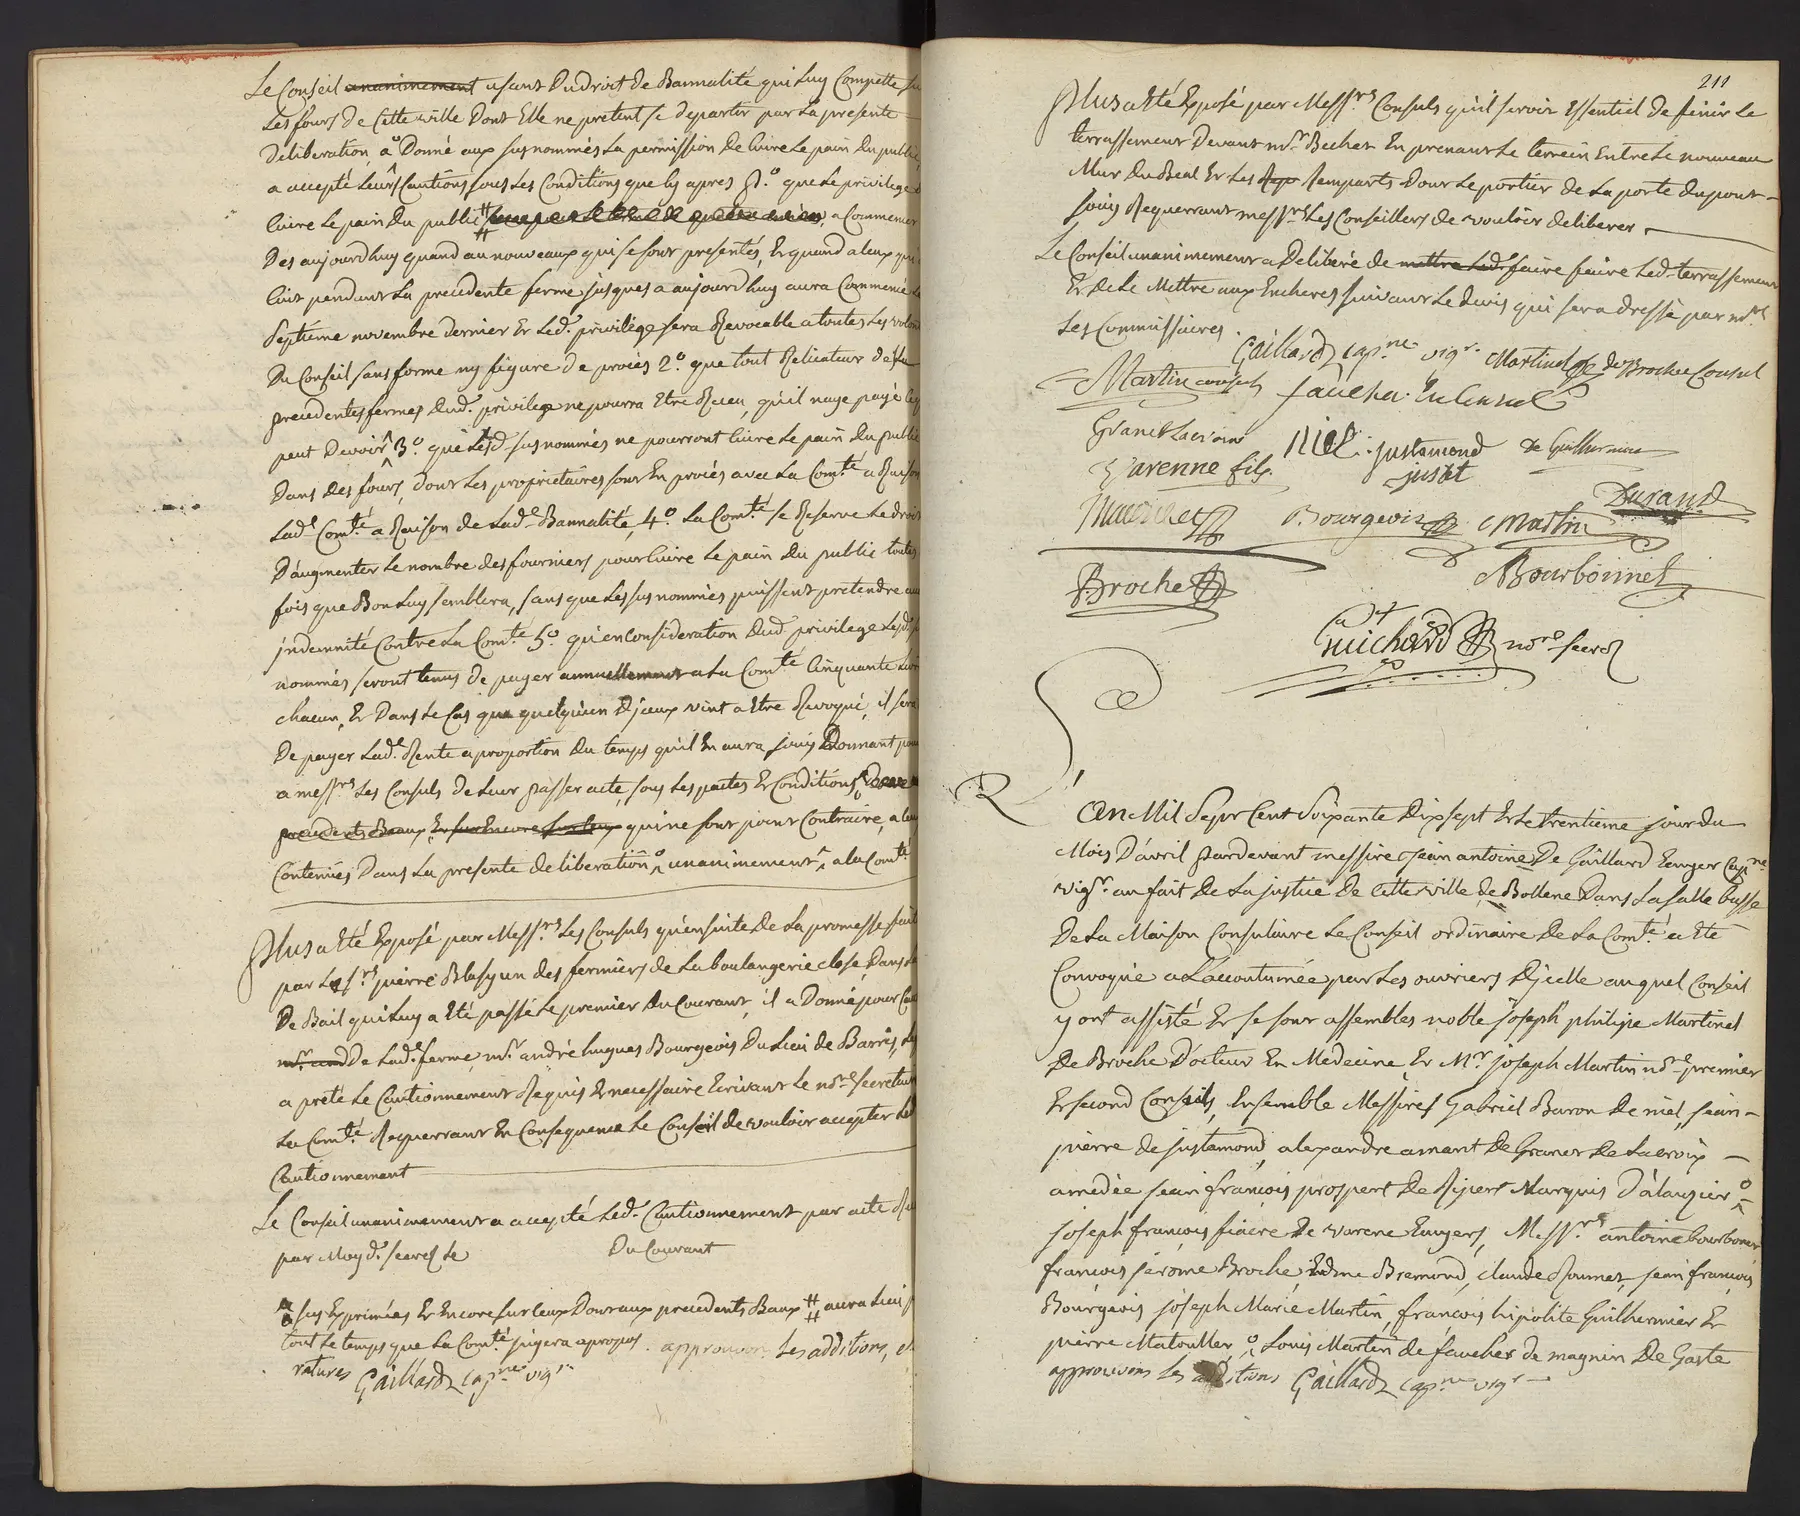 Le Conseil unanimement usant Du droit de Bannalité qui Luy Compette su
Les fours de Cette ville Dont Elle ne pretent se departir par La presente
Deliberation, a Donné aux susnommés La permission De Cuire Le pain Du public,
a accepté Leurs Cautions sous Les Conditions que Cy apres P.º que Le privilege
Cuire Le pain Du public # a Commencer
Des aujourdhuy quand au nouveaux qui se sont presentés, Et quand a Ceux qui
Cuit pendant La precedente ferme jusques a aujourdhuy aura Commencé
Septieme novembre dernier Et Led. privilége sera Revocable a toutes Les volon
Du Conseil sans forme ny figure de procés 2.º que tout Relicateur de
precedentes fermes Dud. privilege ne pourra Etre Receu, qu'il naye payé
peut Devoir 3.º que Lesd. susnommés ne pourront Cuire Le pain Du public
Dans Des fours, dont Les proprietaires sont En procés avec La Com.té a Raison
Lad.e Com.té a Raison de Lad.e Bannalité, 4.º La Com.té se Reserve Le droit
D'augmenter Le nombre des fourniers pour Cuire Le pain Du public toutes
fois que Bon Luy semblera, sans que Les susnommés puissent pretendre
jndemnité Contre La Com.té 5.º qu'en Consideration Dud. privilege Lesd.
nommés seront tenus de payer annuellement a La Com.té Cinquante Liv
chacun, Et Dans Le Cas que quelqu'un D'jceux vint a Etre Revoqué, il sera
De payer Lad.e Rente a proportion Du temps qu'il En aura joui, Donnant pou
a mess.rs Les Consuls de Leur passer acte, sous Les pactes Et Conditions
precedents Baux, Et sur Encore sur Leux qui ne sont point Contraire, a
Contenües Dans La presente deliberation unanimement, a la Com.té
Plus a Eté Exposé par Mess.rs Les Consuls qu'ensuite De La promesse fait
par Le S.r pierre Blasy un des fermiers de La boulangerie close, Dans
De Bail qui Luy a Eté passé Le premier Du Courant, il a Donné pour Cau
De Lad.e ferme, m.r andré hugues Bourgeois Du Lieu de Barris,
a preté Le Cautionnement Requis Et necessaire Ecrivant Le no.re secretaire
La Com.té Requerrant En Consequence Le Conseil de vouloir accepter Led
Cautionnement
Le Conseil unanimement a accepté Led. Cautionnement par acte
par Moy d. secre.t Le Du Courant
sus Exprimées Et Encore sur Ceux Donraux precedents Baux # aura Lieu
tout Le temps que La Com.té jugera apropos. approuvons Les additions,
ratures Gaillard cap.ne vig.r
211
Plus a Eté Exposé par Mess.rs Consuls qu'il seroit Essentiel De finir Le
terrassement Devant m.r Bechet En prenant Le terrein Entre Le nouveau
Mur Du Béal Et Les Remparts Dont Le portier de La porte du pont
jouis Requerrant mess.rs Les Conseillers de vouloir deliberer.
Le Conseil unanimement a Deliberé de mettre Led. faire faire Led. terrassement
Et De Le Mettre aux Encheres suivant Le devis qui sera dressé par m.rs
Les Commissaires.
Gaillard cap.ne vig.r Martinel de Broche Consul
Martin consul faucher
Granet Lacroix niel justamond de Guilhermier
Varenne fils. just
Durand
Bourgeois Martin
Broche Bourbonnet
Michard no.re secre.t
L'
an Mil Sept Cent Soixante Dix sept Et Le trentieme jour du
Mois D'avril pardevant messire jean antoine De Gaillard Ecuyer Cap.ne
vig.r au fait De La justice De Cette ville de Bollene Dans La salle basse
De La Maison Consulaire Le Conseil ordinaire De La Com.té a Eté
Convoqué a L'accoutumée par Les ouvriers D'jcelle auquel Conseil
y ont assisté Et se sont assembles noble joseph philipe Martinel
De Broche Docteur En Medecine, Et M.r joseph Martin no.re premier
Et second Consuls, Ensemble Messires Gabriel Baron De niel, jean
pierre de justamond, alexandre amant De Granet De Lacroix
amedée jean françois prospert De Ripert Marquis D'alauzier
joseph françois fiacre De varene Ecuyers, Mess.rs antoine bourbonet
françois jerome Broche, Edme Bremond, claude Roumet, jean françois
Bourgeois joseph Marie Martin, françois hipolite Guilhermier Et
pierre Matoullier, Louis Martin de faucher de magnin De Gaste
approuvons Les additions Gaillard cap.ne vig.r